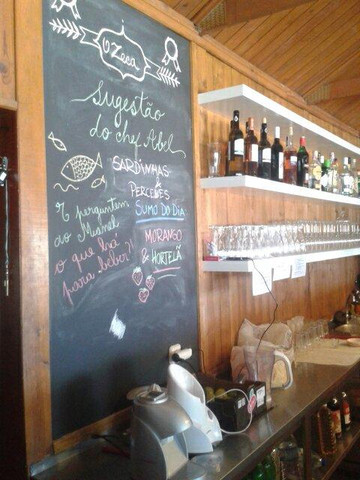 O Zeca
Sugestão
do chef Abel
SARDINHAS
&
PERCEBES
SUMO DO DIA
MORANGO
& HORTELÃ
E perguntem
ao Manel
o que há
para beber?!